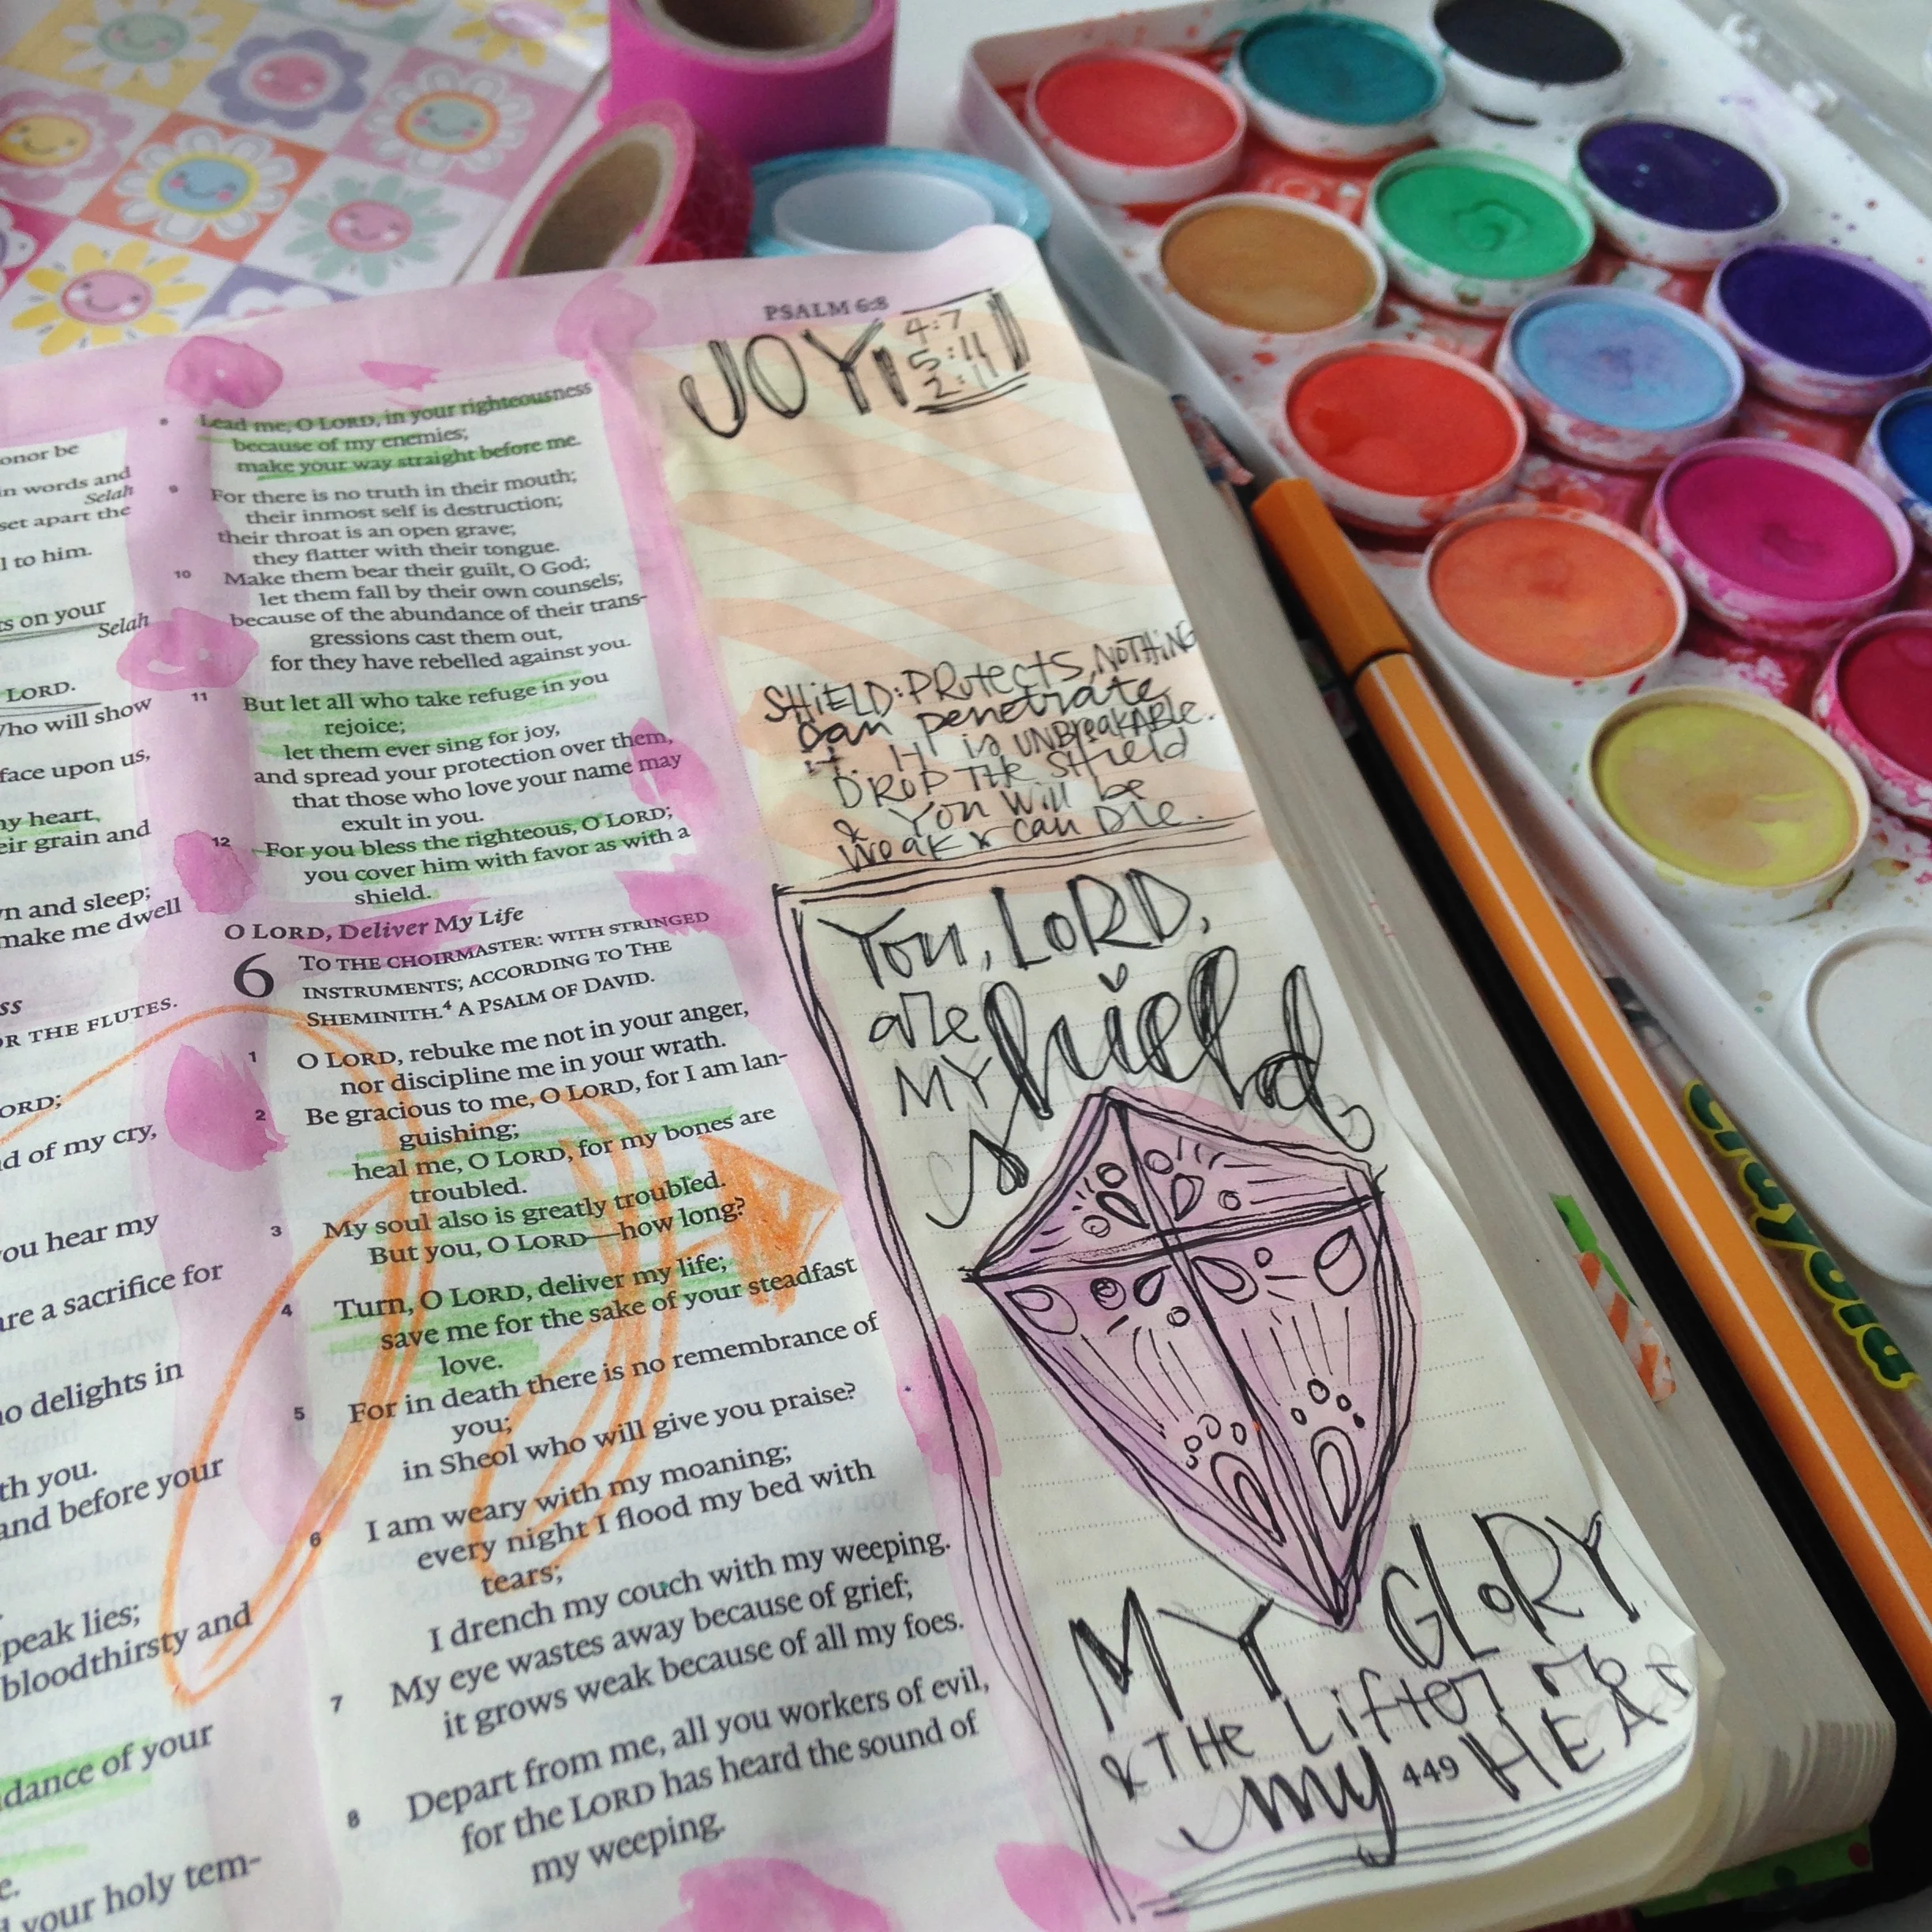 PSALM 6:8
onor be
in words and
Selah
set apart the
l to him.
ts on your
Selah
LORD.
who will show
face upon us,
my heart,
eir grain and
n and sleep;
make me dwell
ss
OR THE FLUTES.
ORD;
d of my cry,
ou hear my
are a sacrifice for
o delights in
th you.
and before your
peak lies;
bloodthirsty and
dance of your
e.
your holy tem-
8 Lead me, O LORD, in your righteousness
because of my enemies;
make your way straight before me.
9 For there is no truth in their mouth;
their inmost self is destruction;
their throat is an open grave;
they flatter with their tongue.
10 Make them bear their guilt, O God;
let them fall by their own counsels;
because of the abundance of their trans-
gressions cast them out,
for they have rebelled against you.
11 But let all who take refuge in you
rejoice;
let them ever sing for joy,
and spread your protection over them,
that those who love your name may
exult in you.
12 For you bless the righteous, O LORD;
you cover him with favor as with a
shield.
O LORD, Deliver My Life
6 TO THE CHOIRMASTER: WITH STRINGED
INSTRUMENTS; ACCORDING TO THE
SHEMINITH.4 A PSALM OF DAVID.
1 O LORD, rebuke me not in your anger,
nor discipline me in your wrath.
2 Be gracious to me, O LORD, for I am lan-
guishing;
heal me, O LORD, for my bones are
troubled.
3 My soul also is greatly troubled.
But you, O LORD—how long?
4 Turn, O LORD, deliver my life;
save me for the sake of your steadfast
love.
5 For in death there is no remembrance of
you;
in Sheol who will give you praise?
6 I am weary with my moaning;
every night I flood my bed with
tears;
I drench my couch with my weeping.
7 My eye wastes away because of grief;
it grows weak because of all my foes.
8 Depart from me, all you workers of evil,
for the LORD has heard the sound of
my weeping.
JOY!
4:7
5:11
2:11
SHiELD: PROtects, NOTHiNG
can penetrate
it. It is UNBreakABLe.
DROP THe SHield
& You Will be
weak & can Die.
You, LoRD,
are
MY shield
MY GLoRY
& THe Lifter of
my HEAD
449
crayola